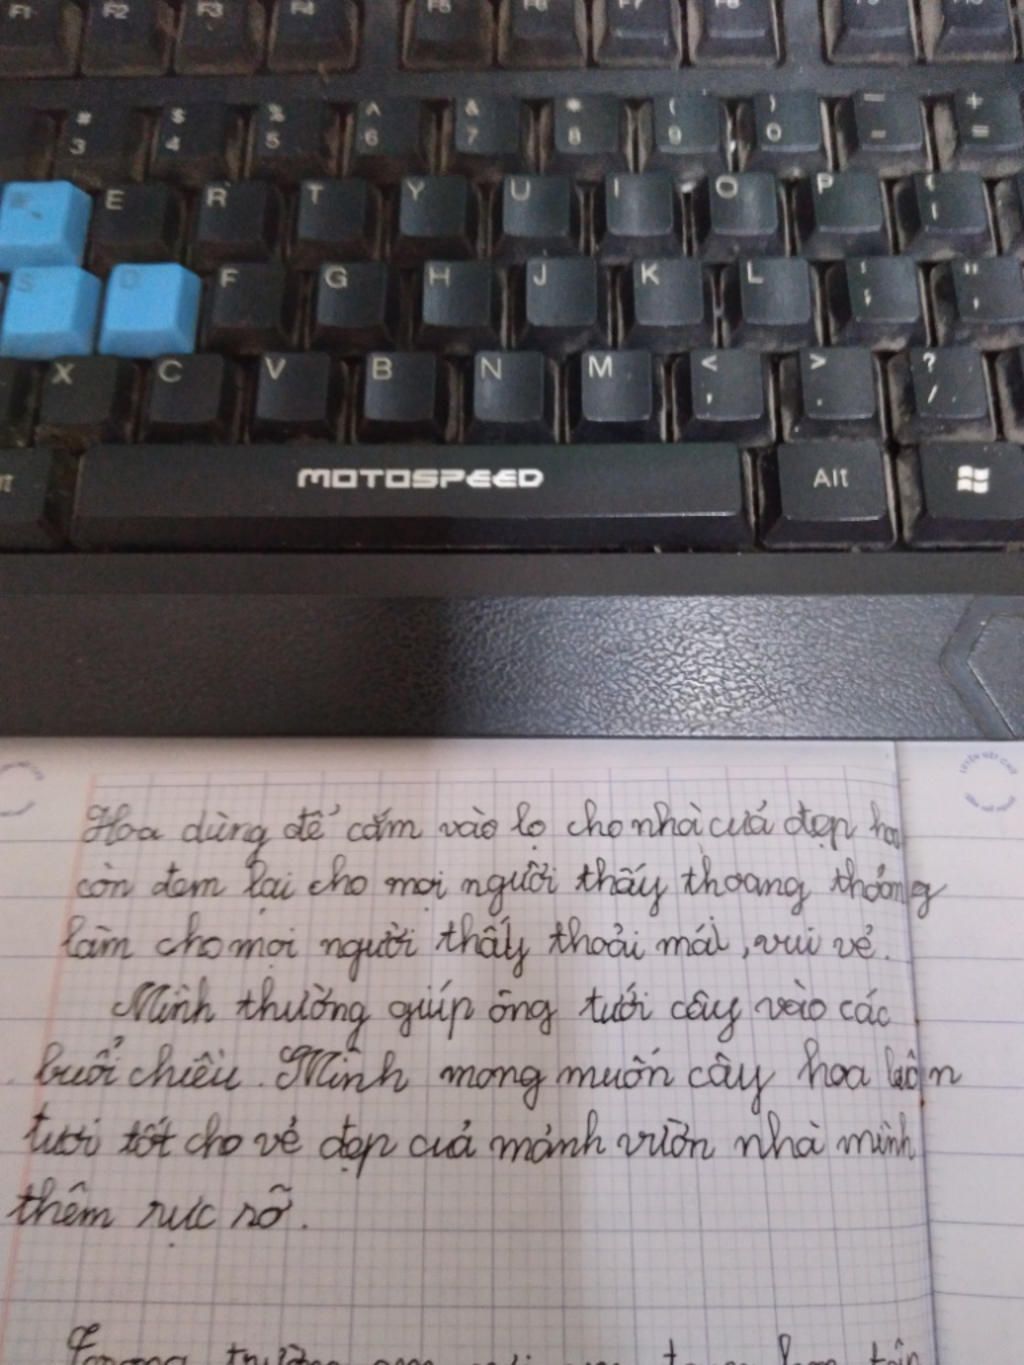 F1 F2 F3 F4 F5 F6 F7 F8
# $ % ^ & * ( ) — +
3 4 5 6 7 8 9 0 - =
E R T Y U I O P {
[
S D F G H J K L : "
; '
X C V B N M < > ?
, . /
MOTOSPEED Alt
Hoa dùng để cắm vào lọ cho nhà cuả đẹp hoa
còn đem lại cho mọi người thấy thoang thoảng
làm cho mọi người thấy thoải mái, vui vẻ.
Mình thường giúp ông tưới cây vào các
buổi chiều. Mình mong muốn cây hoa luôn
tươi tốt cho vẻ đẹp cuả mảnh vườn nhà mình
thêm rực rỡ.